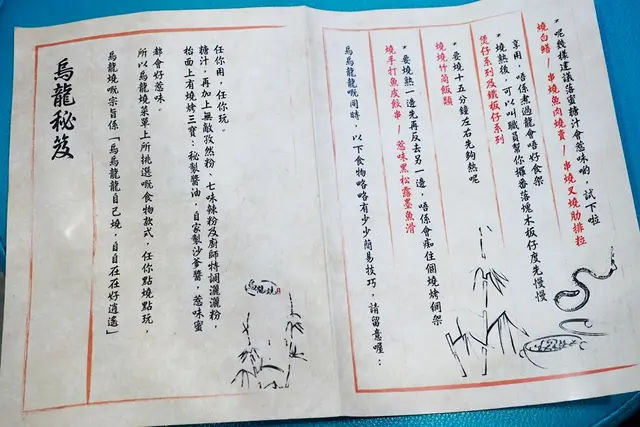 烏龍秘笈
烏龍燒嘅宗旨係「烏烏龍龍自己燒，自自在在好逍遙」
所以烏龍燒菜單上所挑選嘅食物款式，任你點燒點玩，
都會好惹味。
枱面上有燒烤三寶：秘製醬油，自家製沙爹醬，惹味蜜
糖汁，再加上無敵孜然粉、七味辣粉及廚師特調灑灑粉，
任你用，任你玩。
烏龍燒
烏烏龍龍嘅同時，以下食物略略有少少簡易技巧，請留意喔：
燒手打魚皮餃串/惹味黑松露墨魚滑
*要燒熟一邊先再反去另一邊，唔係會痴住個燒烤網架
燒燒竹筒飯類
*要燒十五分鐘左右先夠熱呢
煲仔系列及鐵板仔系列
*燒熱後，可以叫職員幫你攞番落塊木板仔度先慢慢
享用，唔係煮過龍會唔好食架
燒白鱔/串燒魚肉燒賣/串燒叉燒肋排粒
*呢幾樣建議落蜜糖汁會惹味啲，試下啦